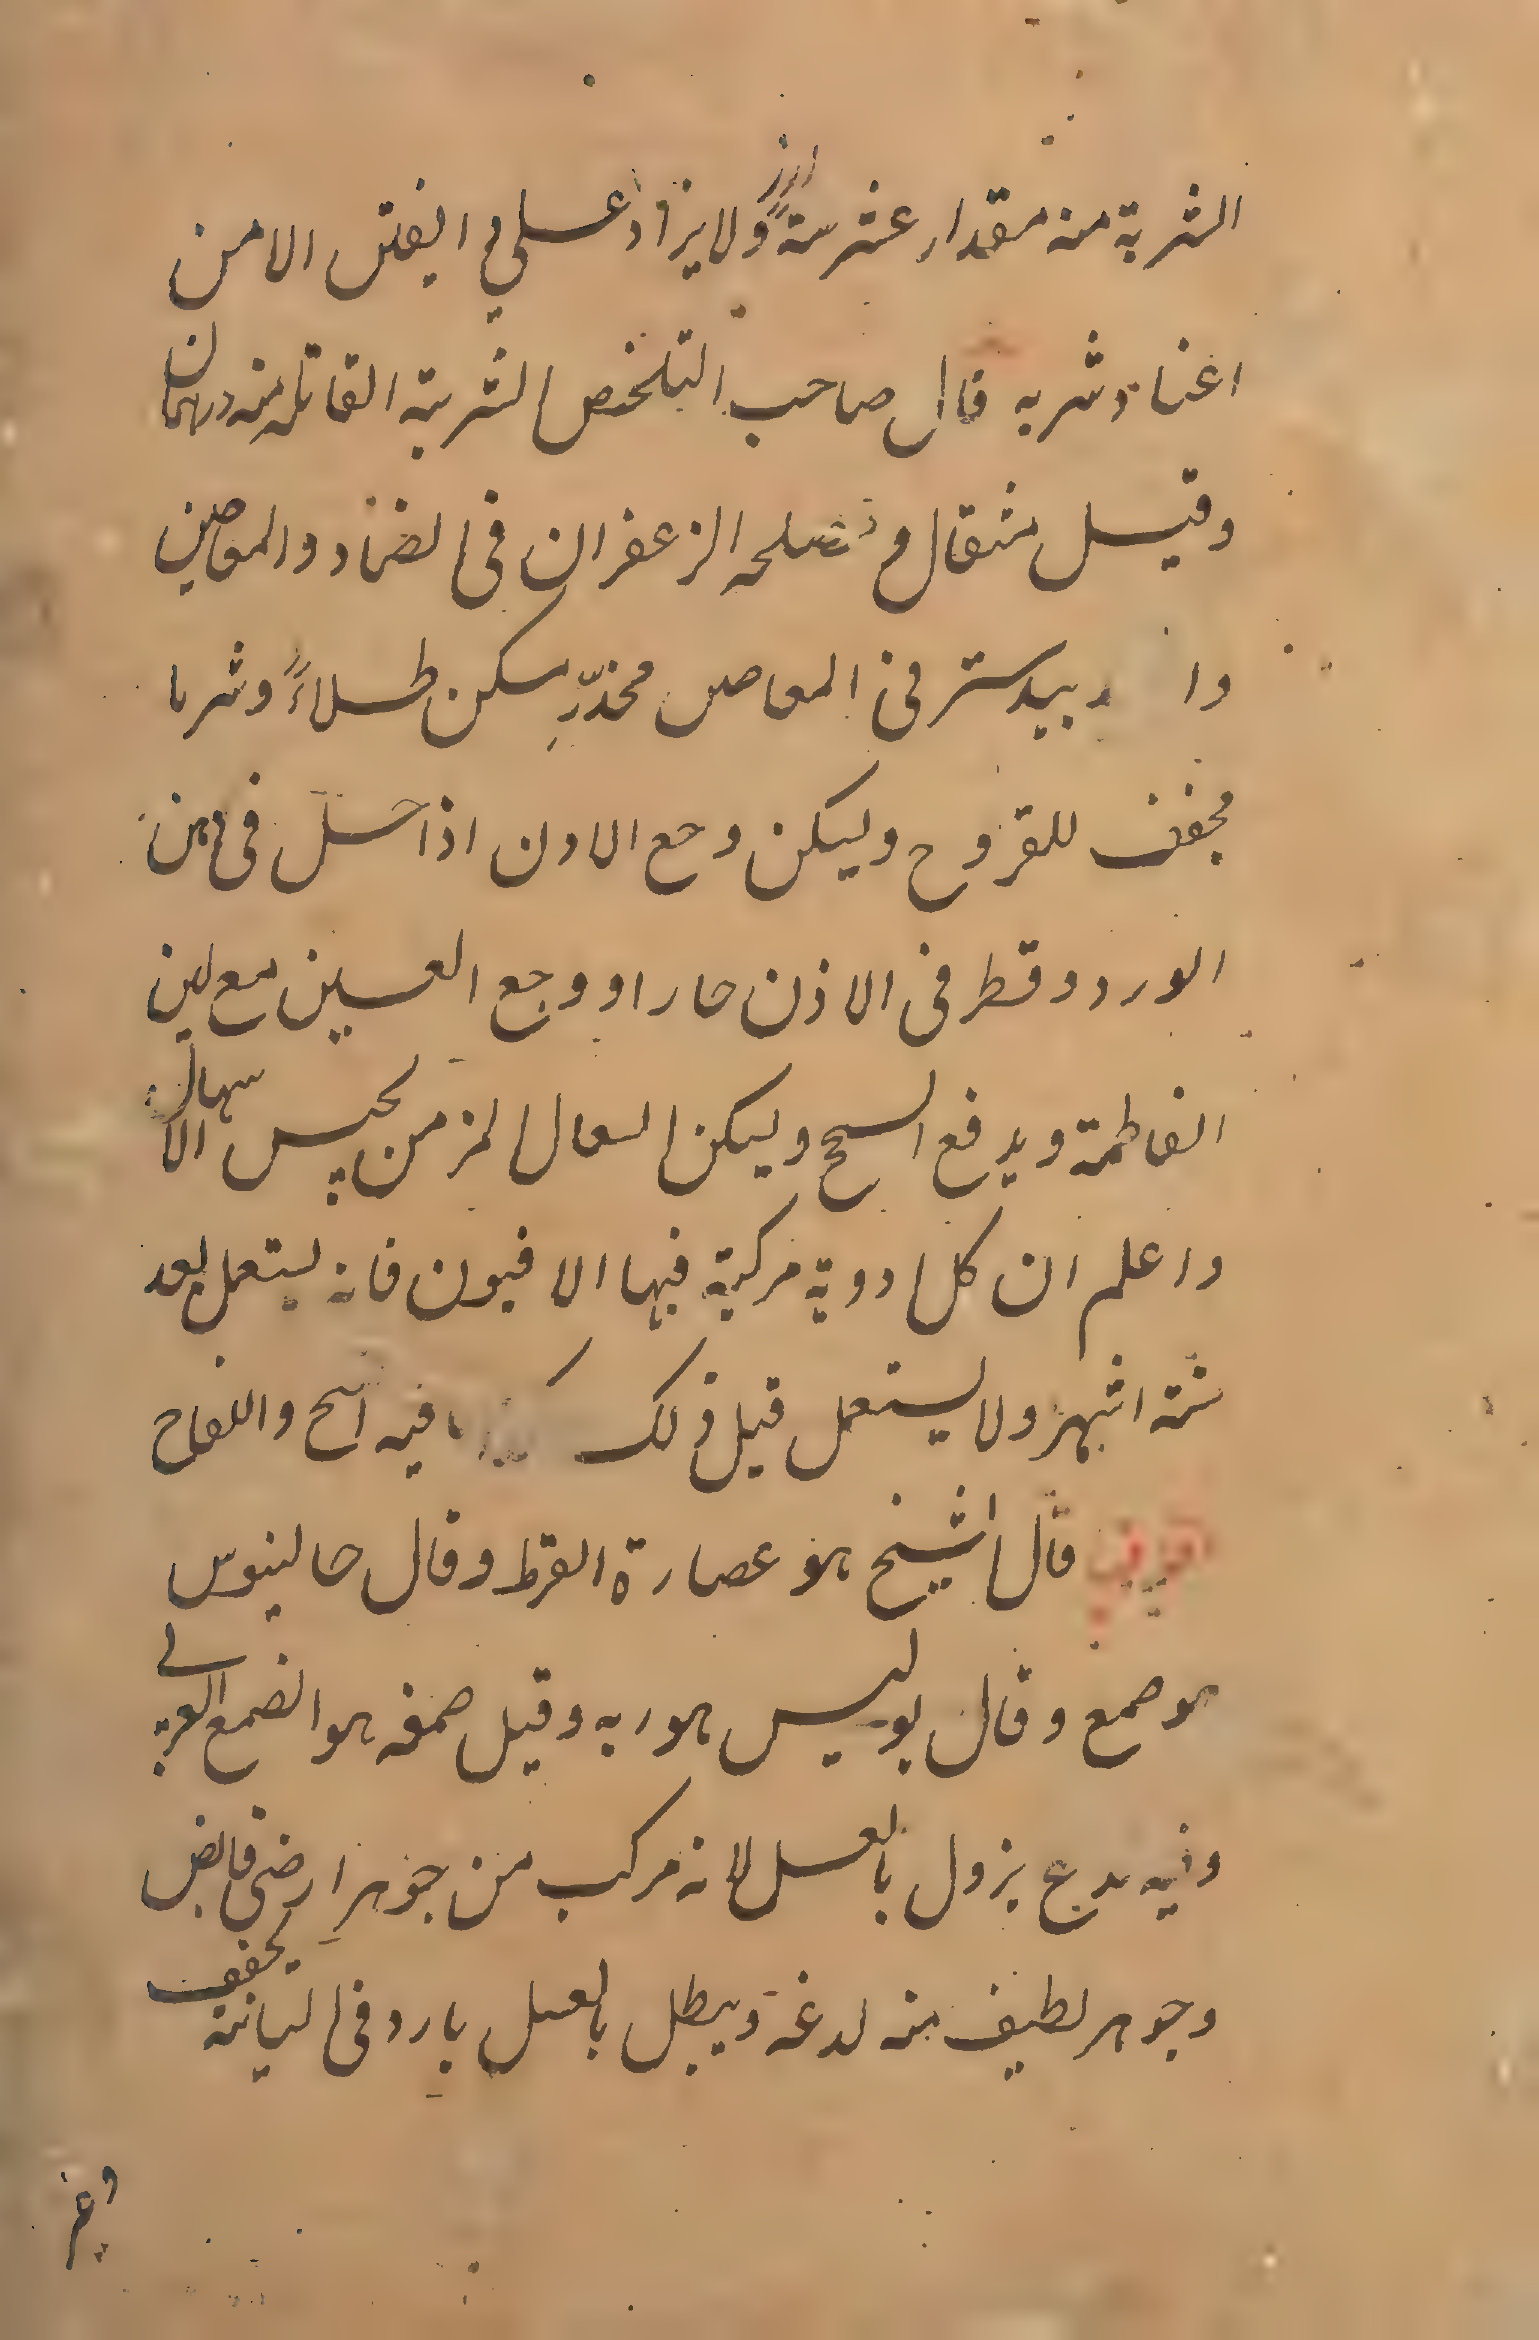 الشربة منه مقدار عشر ستة ارز ولا يزاد علي دانقين الا من
اعتاد شربه قال صاحب التلخيص الشربة القاتله منه درهمان
وقيل مثقال و تصلحه الزعفران في الضماد والمعاجين
وا بيدستر في المعاجين مخدّر مسكن طلاءً وشربا
مجفف للقروح ويسكن وجع الاذن اذا حل في دهن
الورد وقطر في الاذن حارا ووجع العين مع لبن
الفاطمة ويدفع السحج ويسكن السعال المزمن يحبس الاسهال
واعلم ان كل ادوية مركبة فيها الافيون فانه يستعمل بعد
ستة اشهر ولا يستعمل قبل ذلك فيه البنج واللفاح
قال الشيخ هو عصارة القرظ وقال جالينوس
هو صمغ وقال بوليس هو ربه وقيل صمغه هو الصمغ العربي
وفيه لدع يزول بالغسل لانه مركب من جوهر ارضي قابض
وجوهر لطيف منه لدغه ويبطل بالغسل بارد في الثانية يجفف
وغر